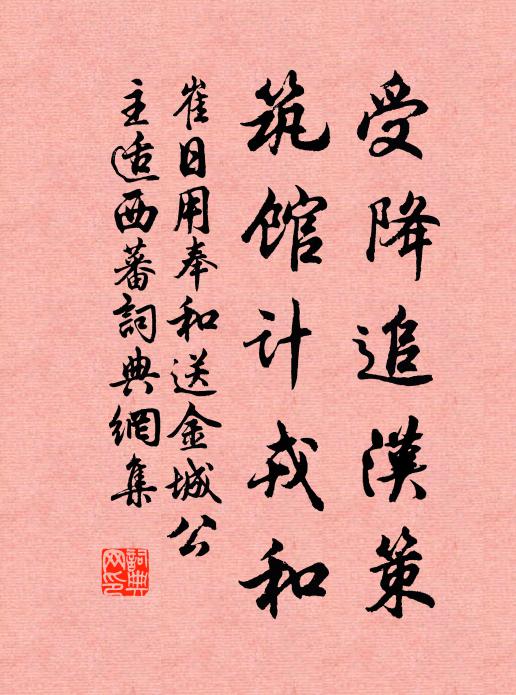 受降追漢策
筑館计戎和
崔日用奉和送金城公
主适西蕃詞典網集
詞典网印